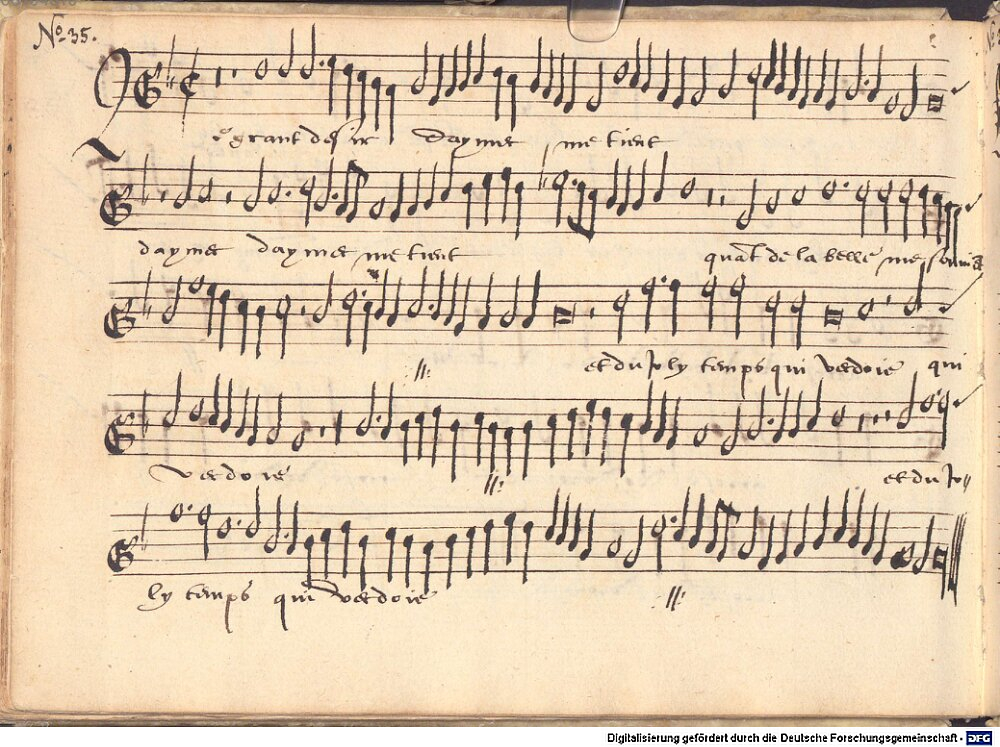 No. 35.
Le grant desir daymer me tient
daymer daymer me tient quāt de la belle me souviēt
et du joly temps qui verdoie qui
verdoie et du joy
ly temps qui verdoie
Digitalisierung gefördert durch die Deutsche Forschungsgemeinschaft - DFG